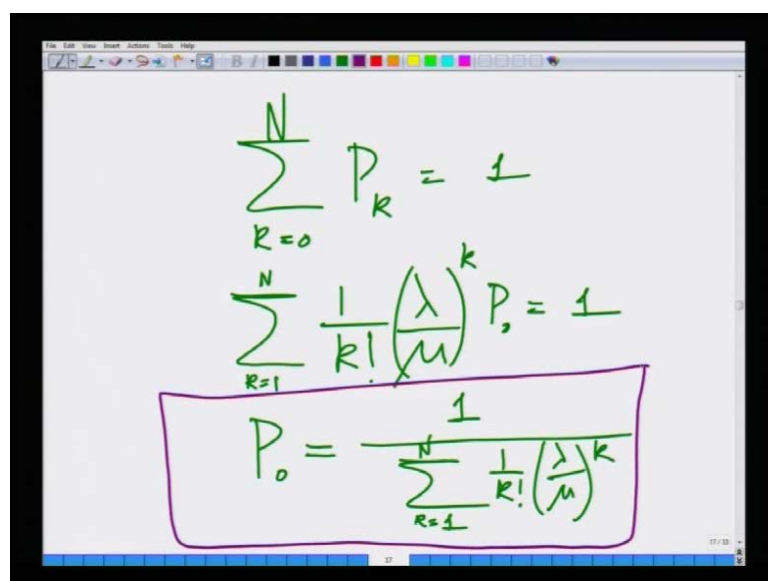 File Edit View Insert Actions Tools Help
B I
N
∑ P_k = 1
k=0
N
∑ 1/k! (λ/μ)^k P_0 = 1
k=1
P_0 = 1 / ∑_{k=1}^{N} 1/k! (λ/μ)^k
17/33
17